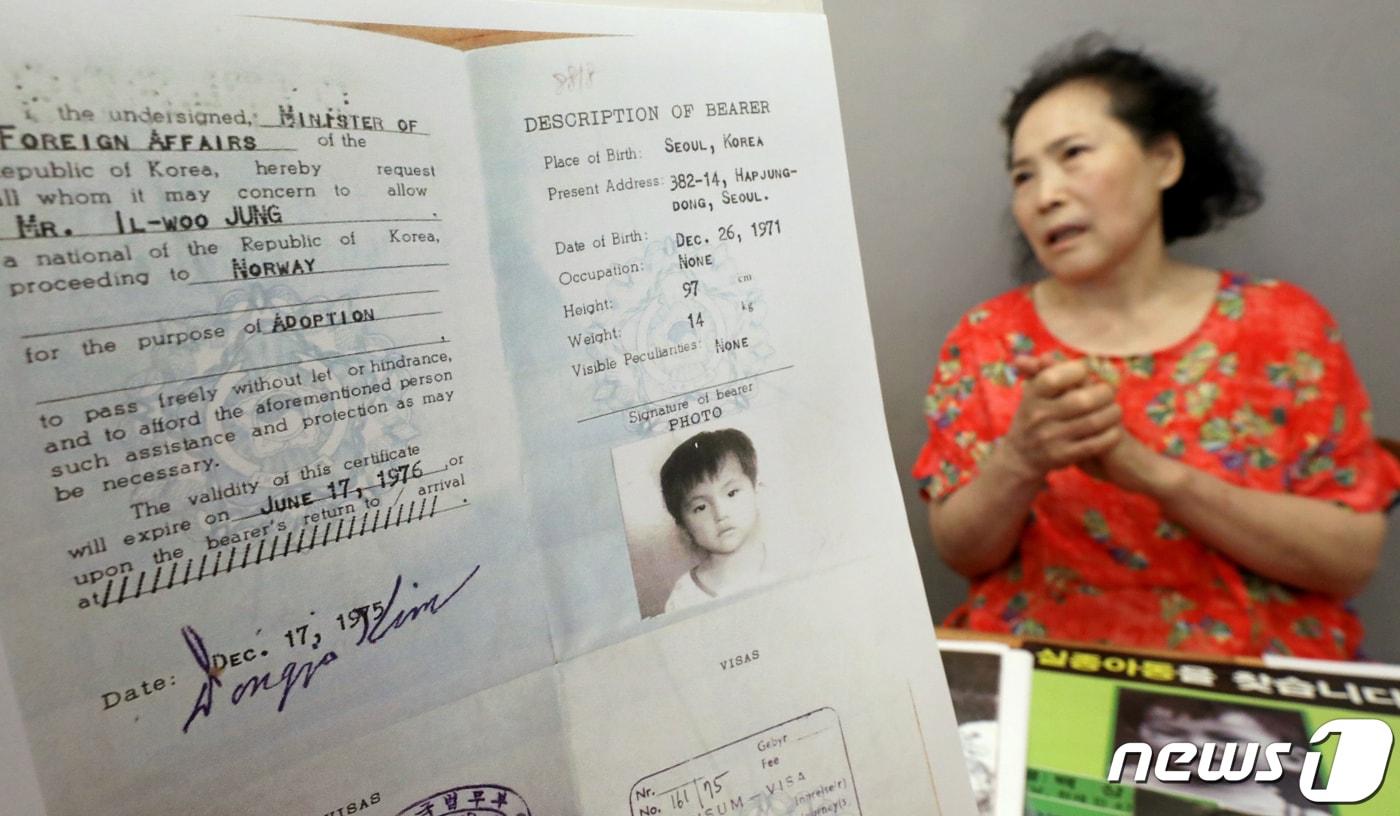 I, the undersigned, MINISTER OF
FOREIGN AFFAIRS of the
Republic of Korea, hereby request
all whom it may concern to allow
MR. IL-WOO JUNG .
a national of the Republic of Korea,
proceeding to NORWAY
for the purpose of ADOPTION ,
to pass freely without let or hindrance,
and to afford the aforementioned person
such assistance and protection as may
be necessary.
The validity of this certificate
will expire on JUNE 17, 1976 or
upon the bearer's return to / arrival
at///////////////////////////// .
Date: DEC. 17, 1975
VISAS
8188
DESCRIPTION OF BEARER
Place of Birth: SEOUL, KOREA
Present Address: 382-14, HAPJUNG-
DONG, SEOUL.
Date of Birth: DEC. 26, 1971
Occupation: NONE
Height: 97 cm
Weight: 14 kg
Visible Peculiarities: NONE
Signature of bearer
PHOTO
VISAS
Gebyr
Fee
Nr.
No. 161/75
SUM-VISA
실종아동을 찾습니다
news1